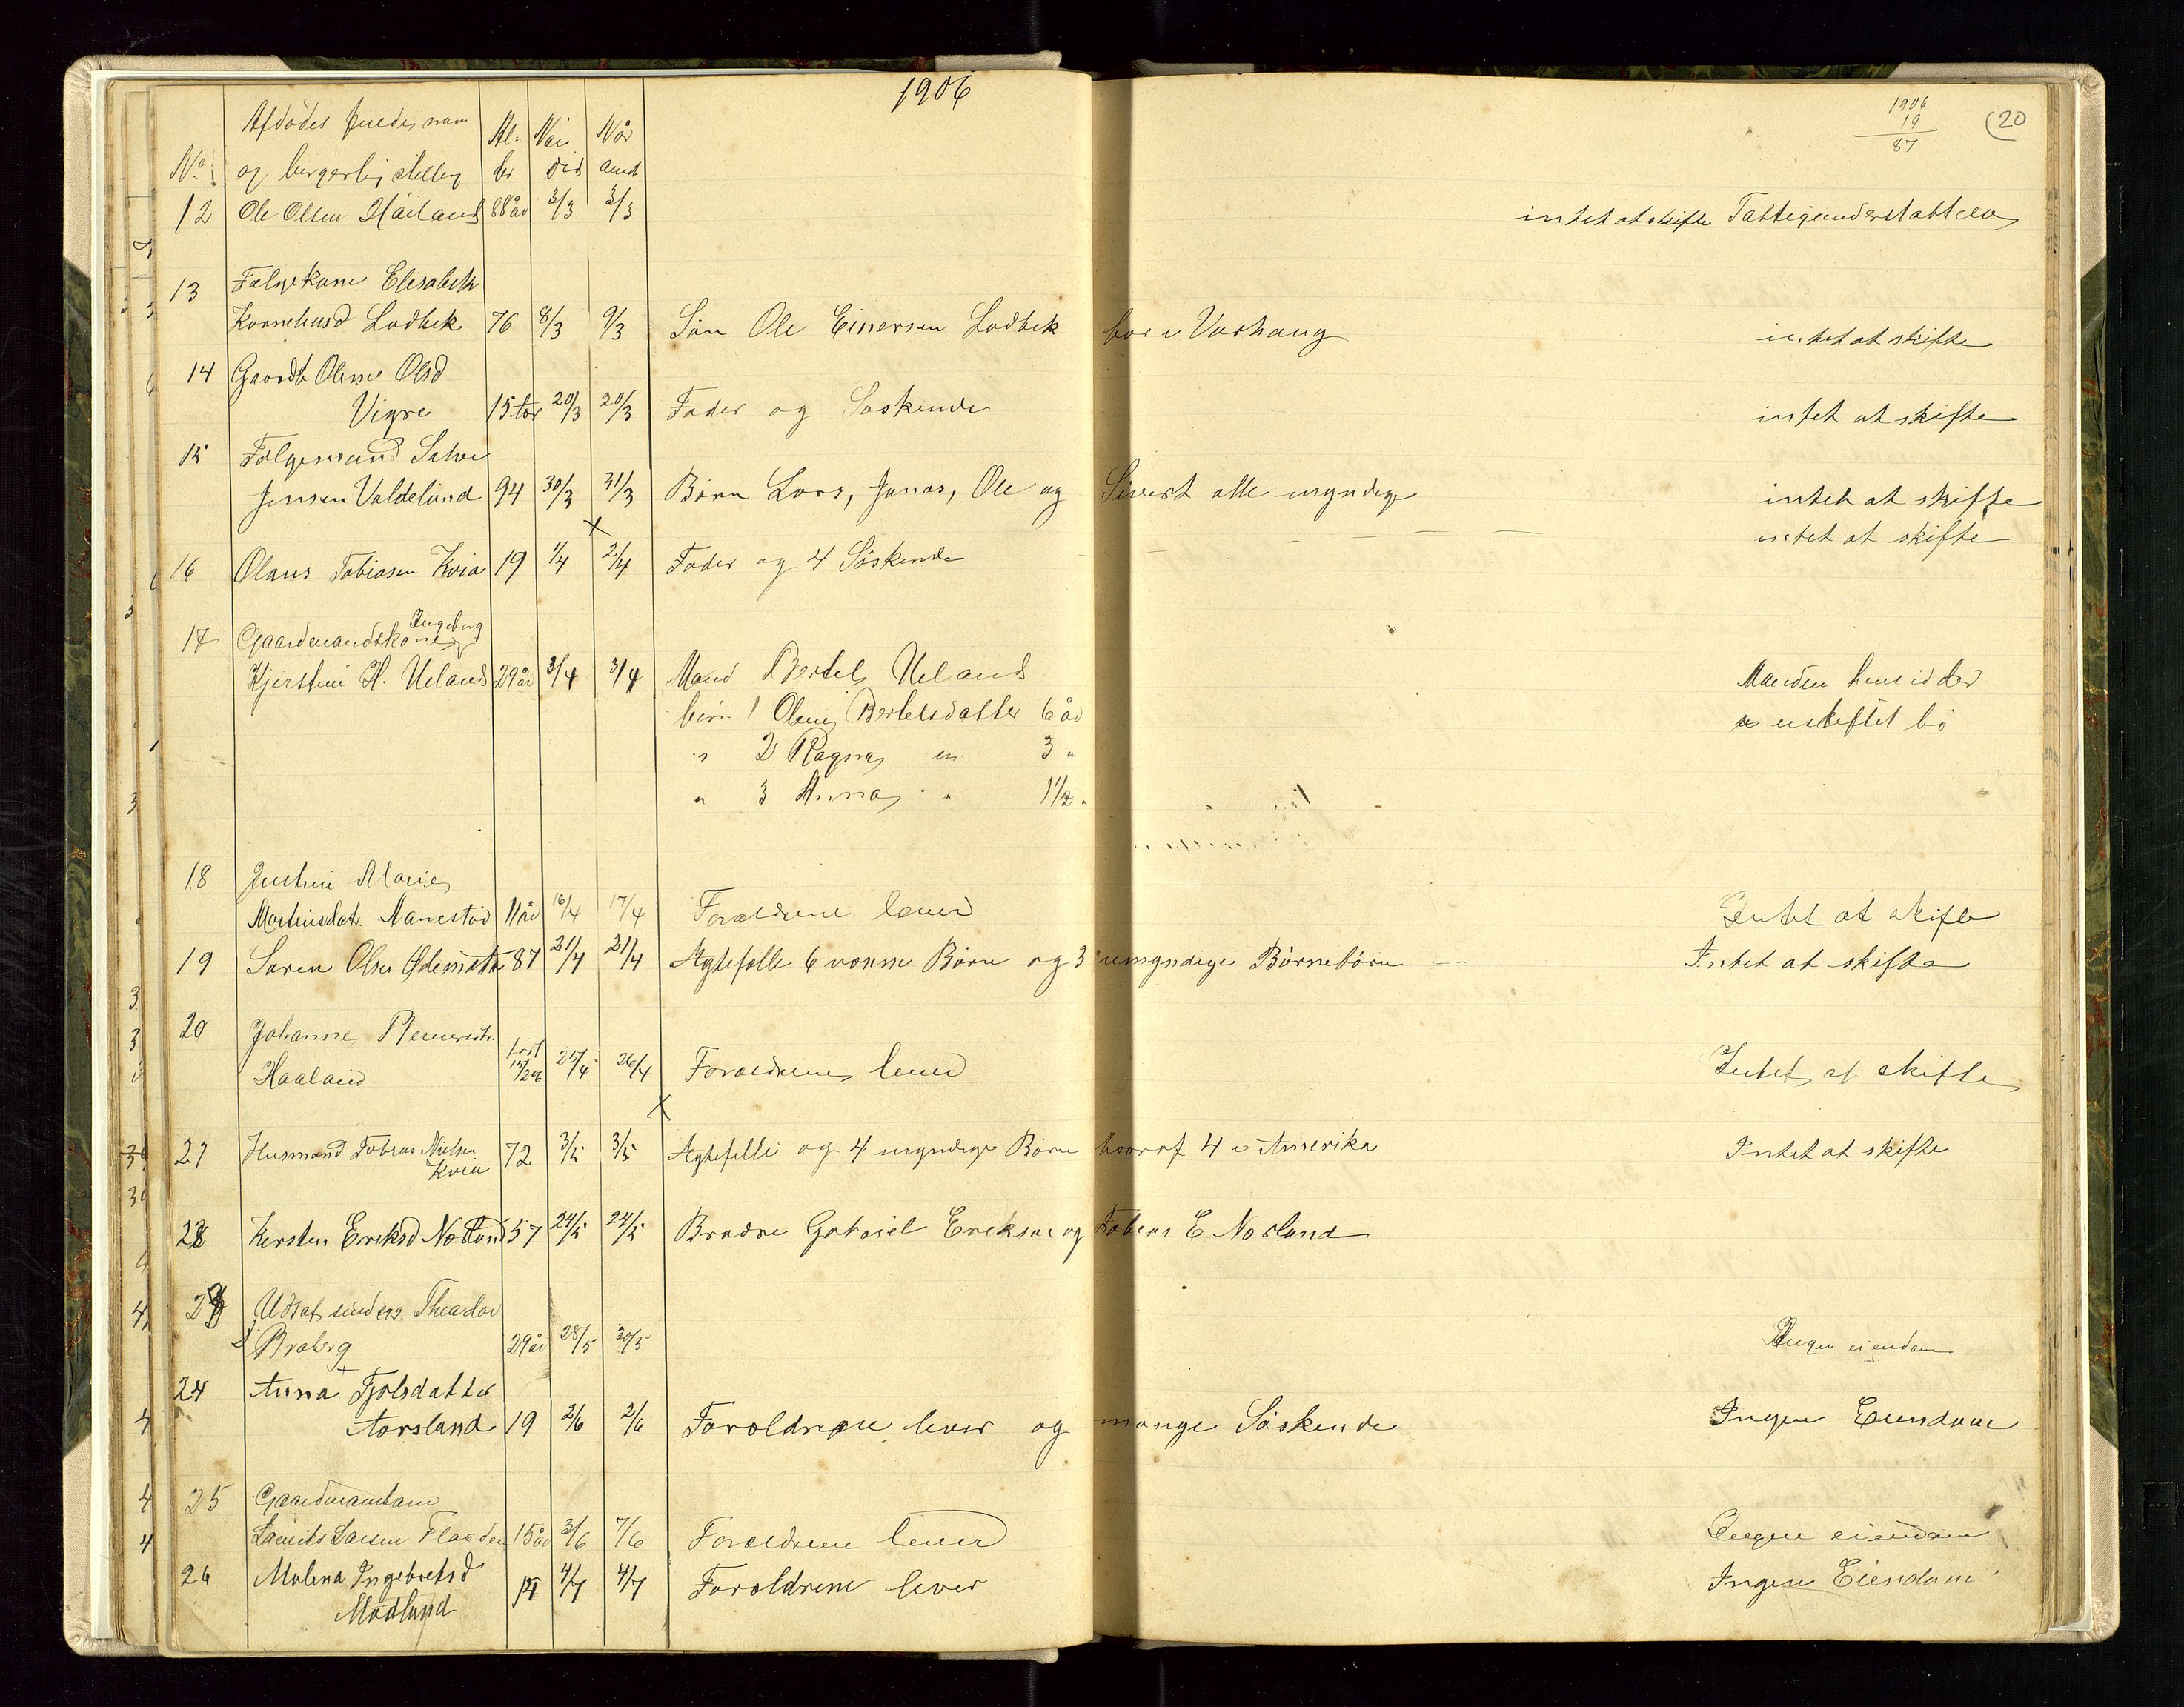 1906
1906
19
87
(20
Afdødes fulde navn Al- Når Når
No og borgerlig stilling der død anmt
12 Ole Olsen Håiland 88 år 3/3 3/3 intet at skifte Fattigunderstøttelse
13 Følgekone Elisabeth
Kornelisd Lodbek 76 8/3 9/3 Søn Ole Einersen Lodbek bor i Varhaug intet at skifte
14 Gaardb Olene Olsd
Vigre 15 20/3 20/3 Fader og Søskende intet at skifte
15 Følgemand Salve
Jensen Valdeland 94 30/3 31/3 Børn Lars, Jonas, Ole og Sivert alle myndige intet at skifte
16 Olaus Tobiasen Kvia 19 1/4 2/4 Fader og 4 Søskende intet at skifte
17 Gaardmandskone Ingeborg
Kjerstine H. Ueland 29 år 3/4 3/4 Mand Bertel Ueland Manden hensidder
børn 1 Oline Bertelsdatter 6 år i uskiftet bo
" 2 Ragna " 3 "
" 3 Anna " 1 1/2 "
18 Justine Marie
Martinsdat. Nærestad 11 år 16/4 17/4 Forældrene lever Intet at skifte
19 Søren Olsen Ødemotta 87 21/4 21/4 Ægtefelle 6 voxne Børn og 3 umyndige Børnebørn Intet at skifte
20 Johanne Reinersdtr.
Haaland født 25/4 26/4 Forældrene lever Intet at skifte
21 Husmand Tobias Nielsen
Kvia 72 3/5 3/5 Ægtefelle og 4 myndige Børn hvoraf 4 i Amerika Intet at skifte
22 Kersten Eriksd Norland 57 24/5 24/5 Brødre Gabriel Eriksen og Tobias E Norland
23 Theodor
Braberg 29 år 28/5 30/5 Ingen eiendom
24 Anna Tjølsdatter
Aarsland 19 2/6 2/6 Forældrene lever og mange Søskende Ingen Eiendom
25 Gaardmandsøn
Laurits Larsen Fladen 15 år 3/6 7/6 Forældrene lever Ingen eiendom
26 Malena Ingebretsd
Mødland 14 4/7 4/7 Forældrene lever Ingen Eiendom